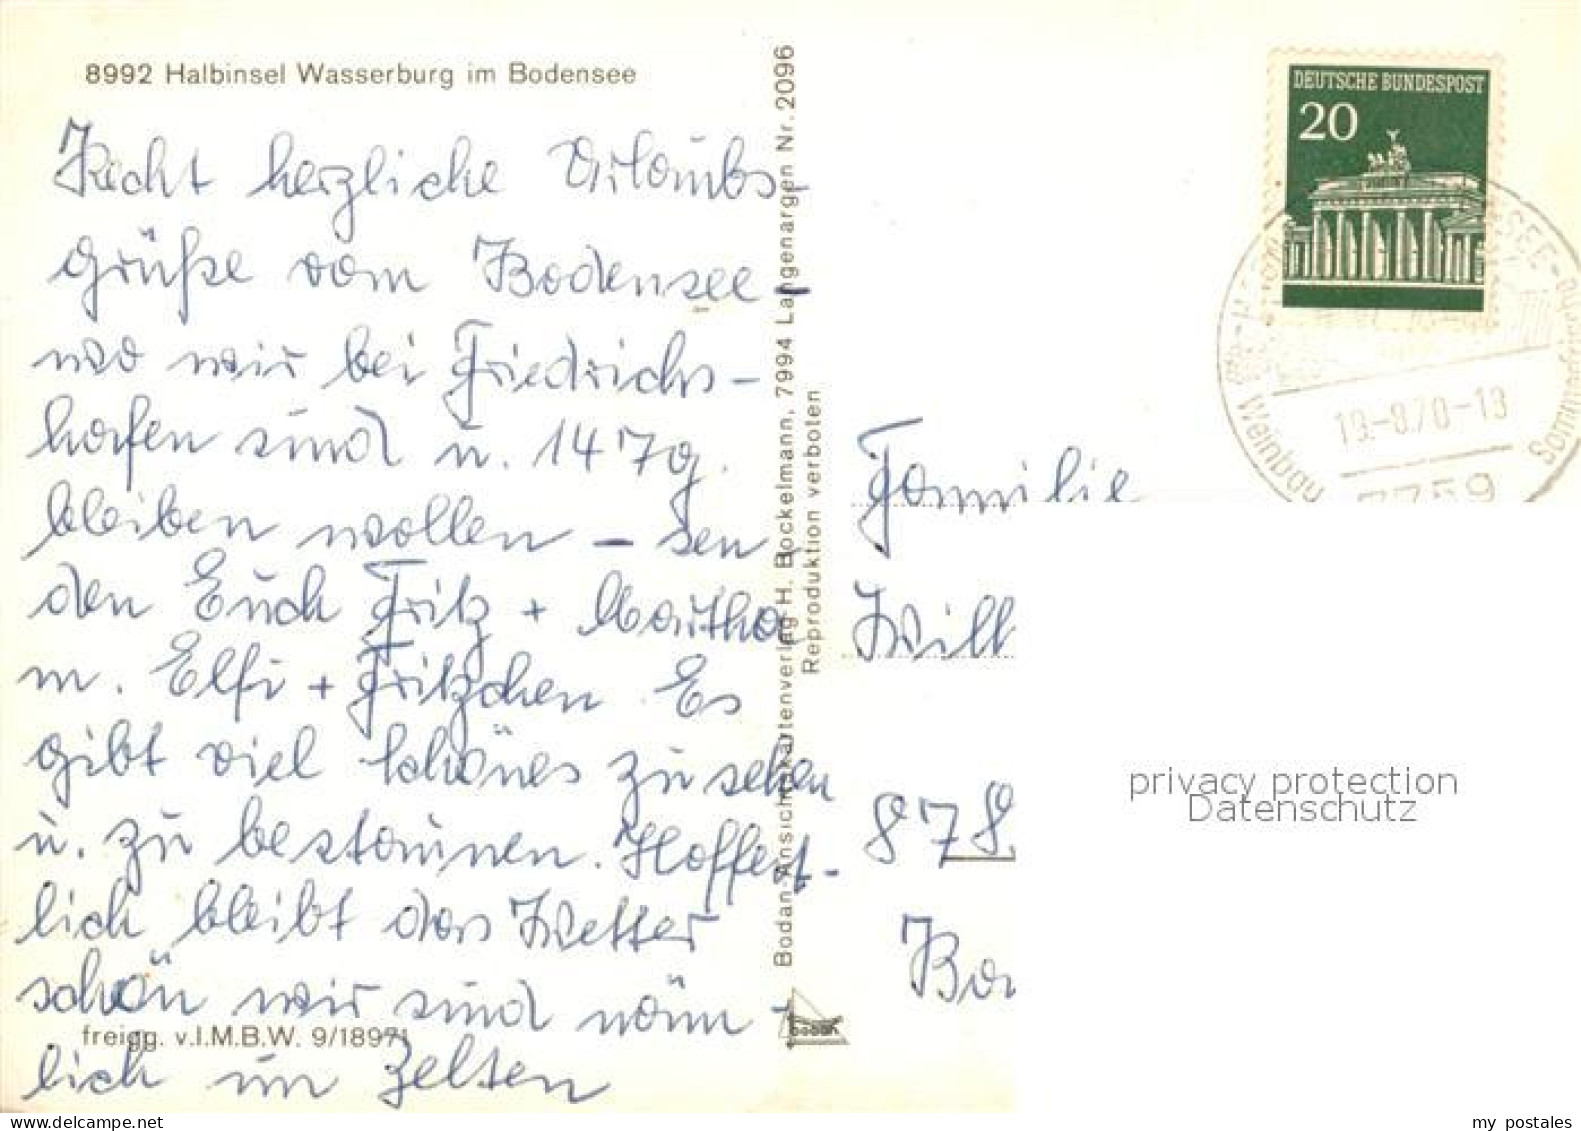 8992 Halbinsel Wasserburg im Bodensee
Recht herzliche Urlaubs-
grüße vom Bodensee -
wo wir bei Friedrichs-
hafen sind u. 14 Tg.
bleiben wollen - sen
den Euch Fritz + Martha
m. Elfi + Fritzchen. Es
gibt viel schönes zu sehen
u. zu bestaunen. Hoffent-
lich bleibt das Wetter
schön wir sind näm-
lich im Zelten
freigg. v. I.M.B.W. 9/18971
Bodan-Ansichtskartenverlag H. Bockelmann, 7994 Langenargen Nr. 2096
Reproduktion verboten
bodan
DEUTSCHE BUNDESPOST
20
SEE-
Weinbau
Sommerfrische
19.-8.70-13
7759
Familie
Will
878
privacy protection
Datenschutz
my postales